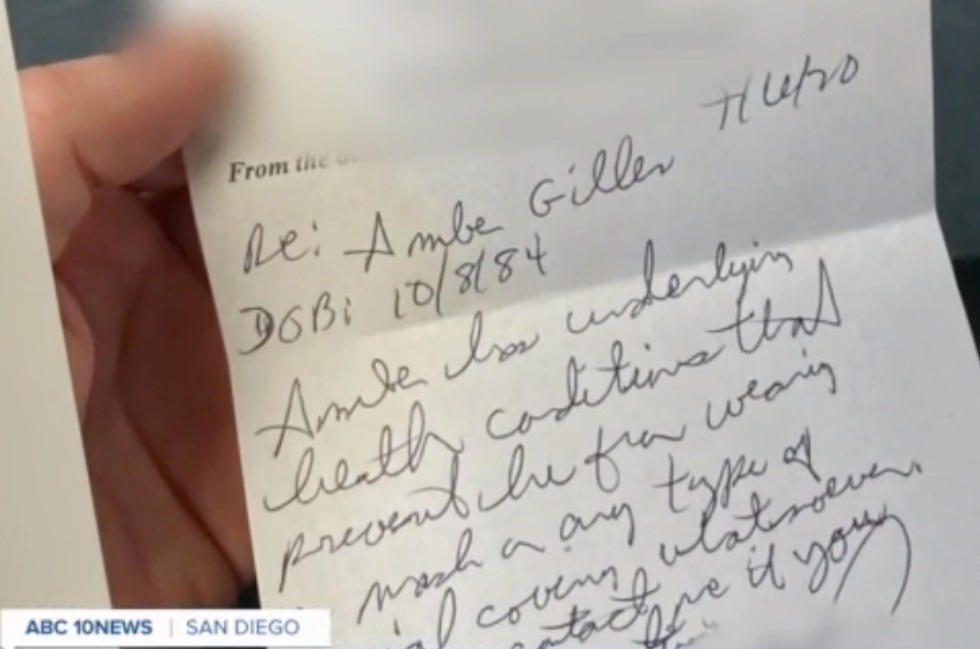 From the
Re: Amber Giller
DOB: 10/8/84
Amber has underlying
health conditions that
prevent her from wearing
mask or any type of
covering whatsoever.
contact me if you
ABC 10NEWS | SAN DIEGO